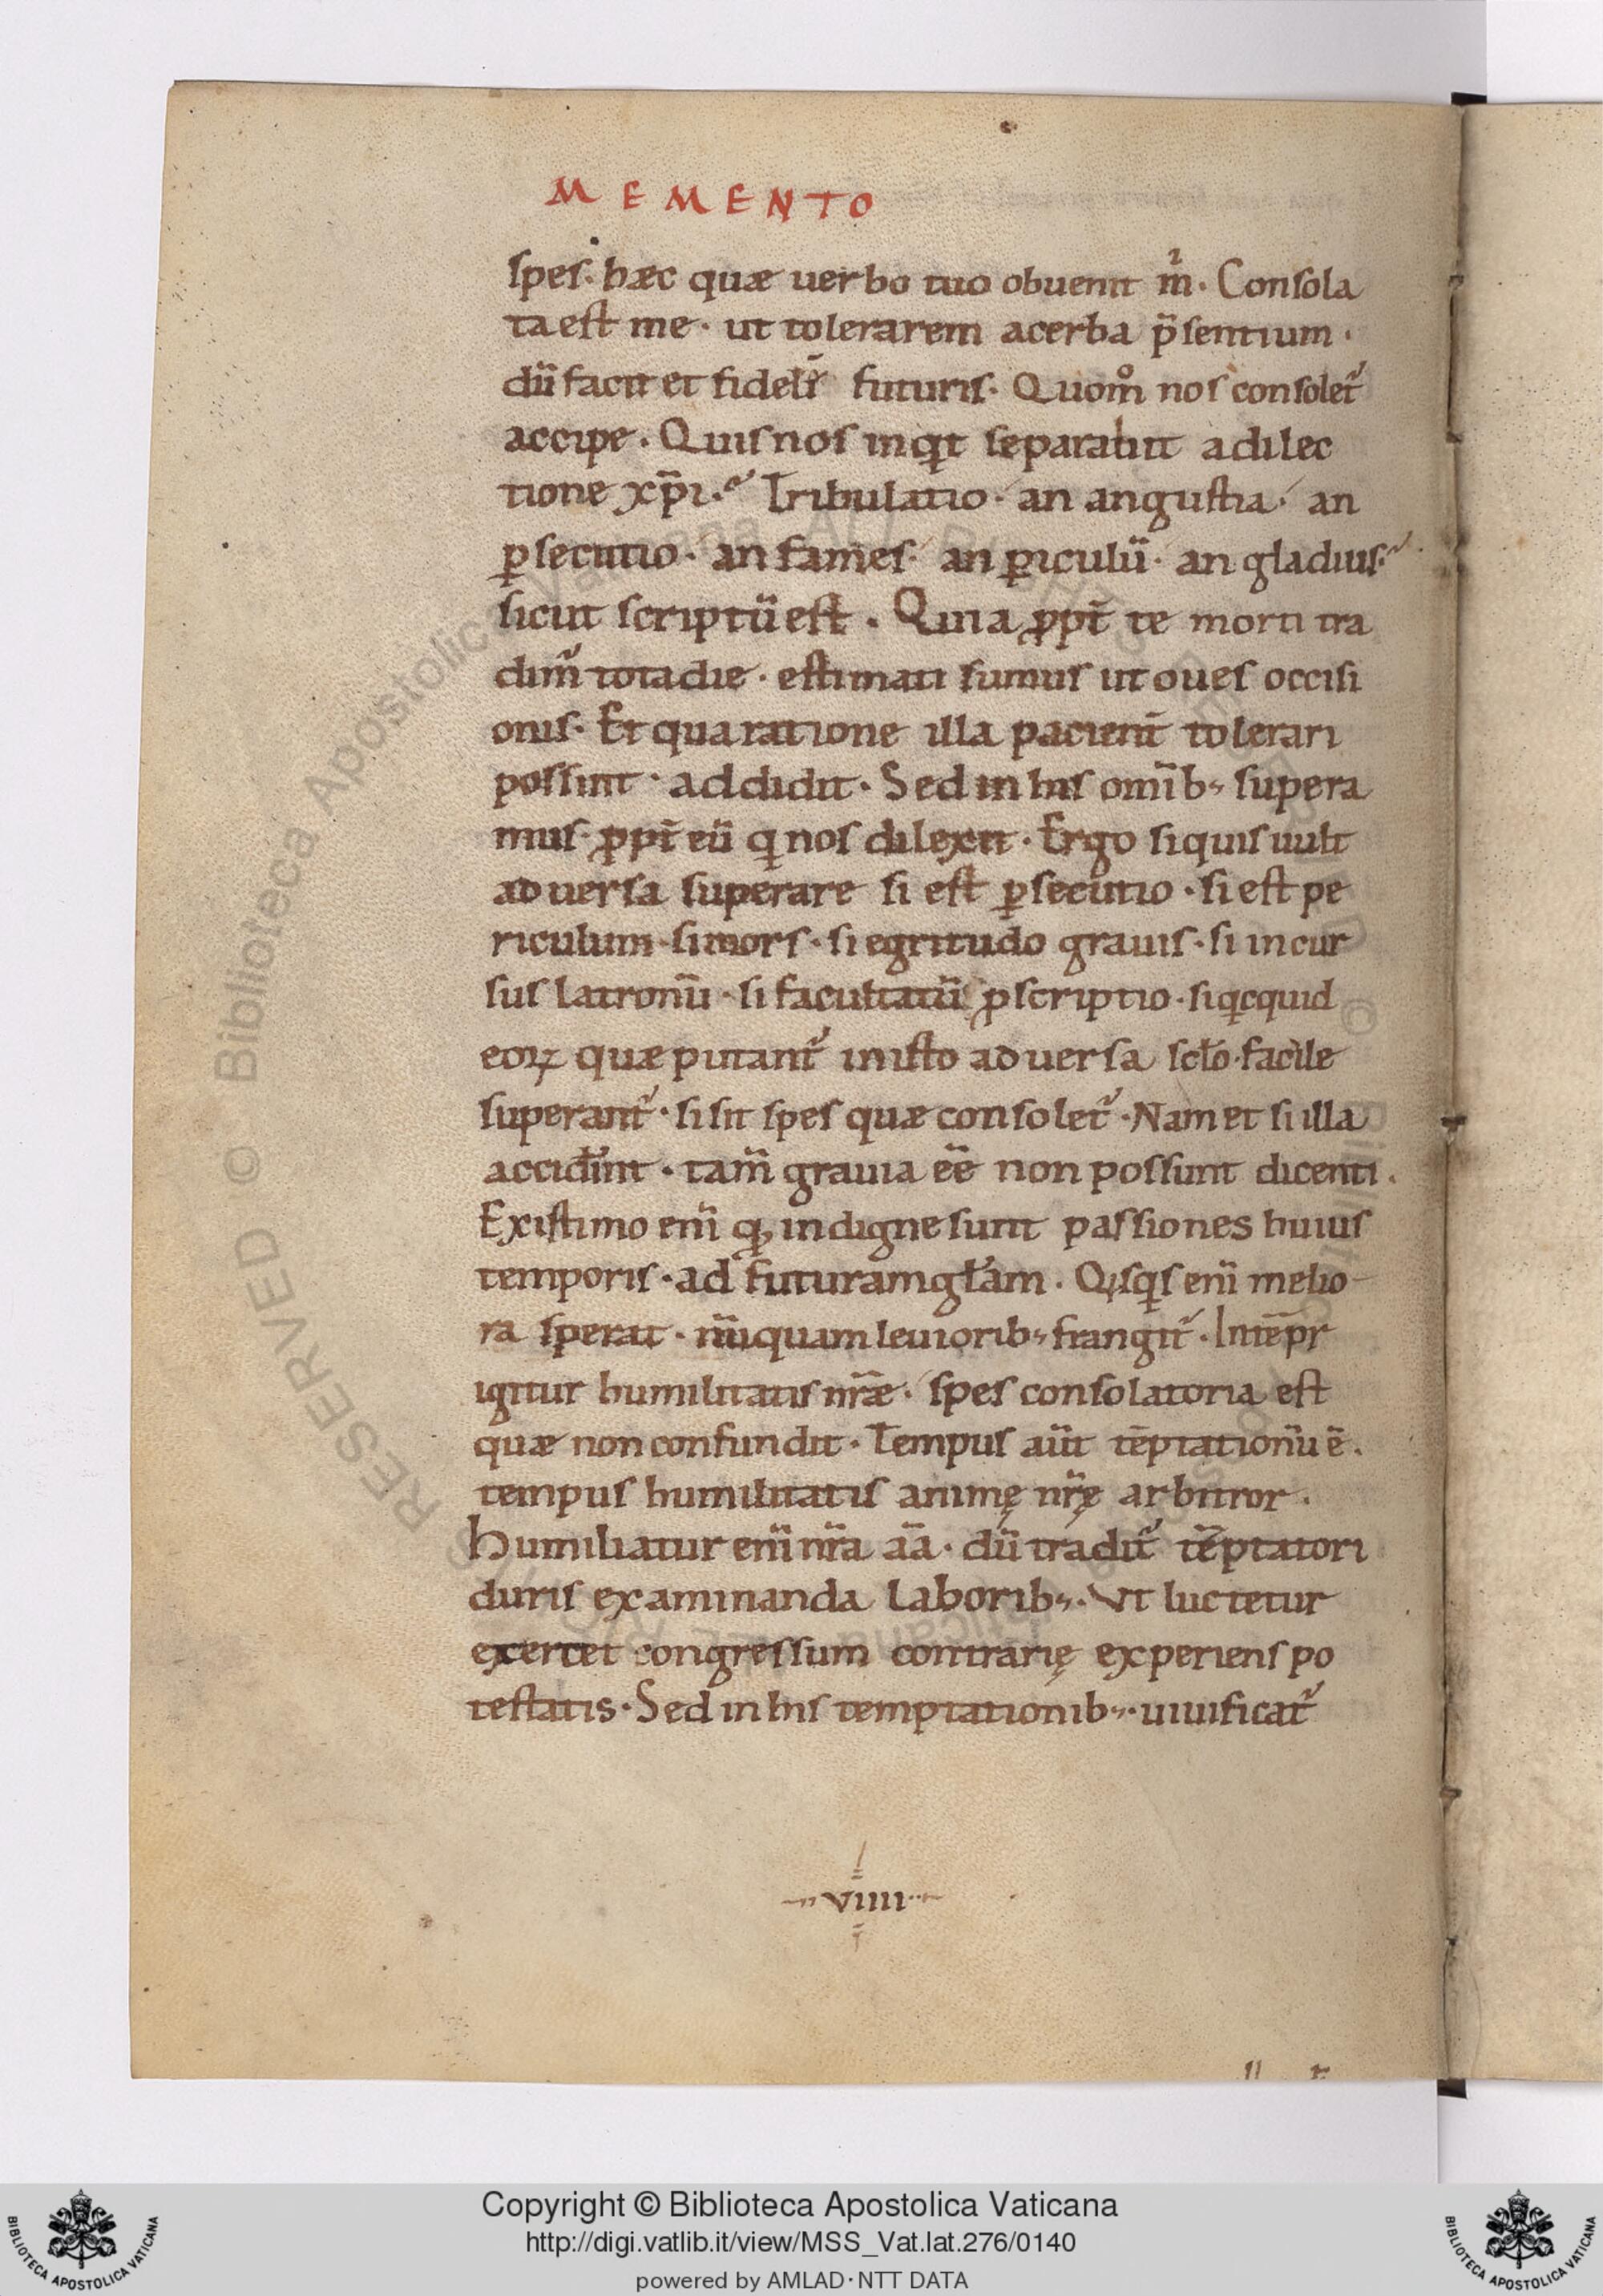 MEMENTO
spes· hæc quæ uerbo tuo obuenit m̃· Consola
ta est me· ut tolerarem acerba p̃sentium·
dũ facit et fidelĩ futuris· Quom̊ nos consolet᷑
accipe· Quis nos inqt separabit a dilec
tione xp̃i· Tribulatio· an angustia· an
ꝑsecutio· an fames· an ꝑiculũ· an gladius·
sicut scriptũ est· Quia ꝓpt̃ te morti tra
dim᷑ tota die· estimati sumus ut oues occisi
onis· Et qua ratione illa pacient̃ tolerari
possint· addidit· Sed in his om̃ib; supera
mus· ꝓpt̃ eũ q nos dilexit· Ergo si quis uult
aduersa superare si est ꝑsecutio· si est pe
riculum· si mors· si egritudo grauis· si incur
sus latronũ· si facultatũ ꝓscriptio· si qcquid
eoꝝ quæ putant᷑ in isto aduersa scło· facile
superant᷑· si sit spes quæ consolet᷑· Nam et si illa
accid̃int· tam̃ grauia eẽ non possunt dicenti·
Existimo eni᷑ qꝫ indigne sunt passiones huius
temporis· ad futuram głam· Qisqs eni᷑ melio
ra sperat· nũquam leuiorib; frangit᷑· Int̃epr
igitur humilitatis nr̃æ· spes consolatoria est
quæ non confundit· Tempus aũt tẽptationũ ẽ·
tempus humilitatis animę nr̃ę arbitror·
Humiliatur eni᷑ nr̃a aã· dũ tradit᷑ tẽptatori
duris examinanda laborib;· Ut luctetur
exercet congressum contrarię experiens po
testatis· Sed in his temptationib;· uiuificat᷑
VIIII
© Biblioteca Apostolica Vaticana
RESERVED
Copyright © Biblioteca Apostolica Vaticana
http://digi.vatlib.it/view/MSS_Vat.lat.276/0140
powered by AMLAD·NTT DATA
BIBLIOTECA APOSTOLICA VATICANA
BIBLIOTECA APOSTOLICA VATICANA